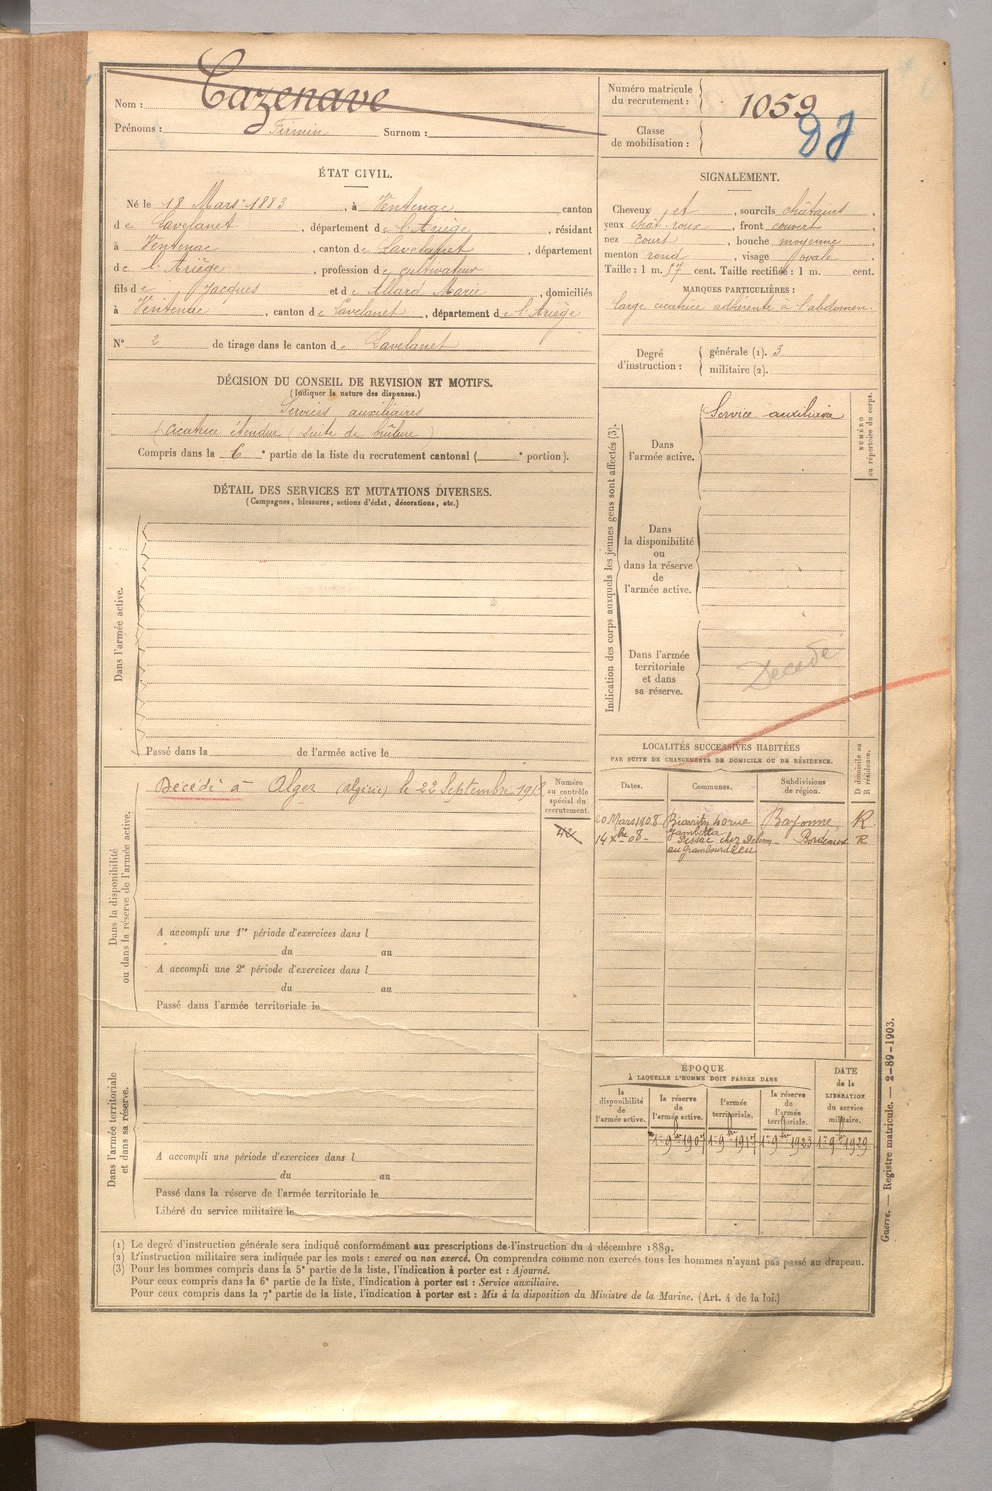 Nom : Cazenave
Prénoms : Firmin Surnom :
Numéro matricule du recrutement : 1059
Classe de mobilisation :
ÉTAT CIVIL.
Né le 18 Mars 1883, à Ventenac canton
de Lavelanet, département de l'Ariège, résidant
à Ventenac, canton de Lavelanet, département
de l'Ariège, profession de cultivateur
fils de Jacques et de Allard Marie, domiciliés
à Ventenac, canton de Lavelanet, département de l'Ariège
N° 2 de tirage dans le canton de Lavelanet
SIGNALEMENT.
Cheveux et, sourcils châtains,
yeux chât. roux, front couvert,
nez court, bouche moyenne
menton rond, visage ovale
Taille : 1 m. 57 cent. Taille rectifiée : 1 m. cent.
MARQUES PARTICULIÈRES :
large cicatrice adhérente à l'abdomen.
Degré d'instruction :
générale (1). 3
militaire (2).
DÉCISION DU CONSEIL DE REVISION ET MOTIFS.
(Indiquer la nature des dispenses.)
Services auxiliaires
(cicatrice étendue (suite de brûlure)
Compris dans la 6e partie de la liste du recrutement cantonal ( e portion).
DÉTAIL DES SERVICES ET MUTATIONS DIVERSES.
(Campagnes, blessures, actions d'éclat, décorations, etc.)
Dans l'armée active.
Passé dans la de l'armée active le
Indication des corps auxquels les jeunes gens sont affectés (3).
Dans l'armée active.
Service auxiliaire
NUMÉRO au répertoire du corps.
Dans la disponibilité ou dans la réserve de l'armée active.
Dans l'armée territoriale et dans sa réserve.
Décédé
Dans la disponibilité ou dans la réserve de l'armée active.
Décédé à Alger (algérie) le 22 Septembre
Numéro au contrôle spécial du recrutement.
A accompli une 1re période d'exercices dans l
du au
A accompli une 2e période d'exercices dans l
du au
Passé dans l'armée territoriale le
LOCALITÉS SUCCESSIVES HABITÉES
PAR SUITE DE CHANGEMENTS DE DOMICILE OU DE RÉSIDENCE.
Dates. Communes. Subdivisions de région. D domicile ou R résidence.
20 Mars 1908 Biarritz 40 rue Gambetta Bayonne R
14 Xbre 08 chez Bordeaux R
Dans l'armée territoriale et dans sa réserve.
A accompli une période d'exercices dans l
du au
Passé dans la réserve de l'armée territoriale le
Libéré du service militaire le
ÉPOQUE
À LAQUELLE L'HOMME DOIT PASSER DANS
la disponibilité de l'armée active.
la réserve de l'armée active.
l'armée territoriale.
la réserve de l'armée territoriale.
DATE de la LIBÉRATION du service militaire.
1er 9bre 1907 1er 9bre 1917 1er 9bre 1923 1er 9bre 1929
(1) Le degré d'instruction générale sera indiqué conformément aux prescriptions de l'instruction du 4 décembre 1889.
(2) L'instruction militaire sera indiquée par les mots : exercé ou non exercé. On comprendra comme non exercés tous les hommes n'ayant pas passé au drapeau.
(3) Pour les hommes compris dans la 5e partie de la liste, l'indication à porter est : Ajourné.
Pour ceux compris dans la 6e partie de la liste, l'indication à porter est : Service auxiliaire.
Pour ceux compris dans la 7e partie de la liste, l'indication à porter est : Mis à la disposition du Ministre de la Marine. (Art. 4 de la loi.)
Guerre. — Registre matricule. — 2-89-1903.